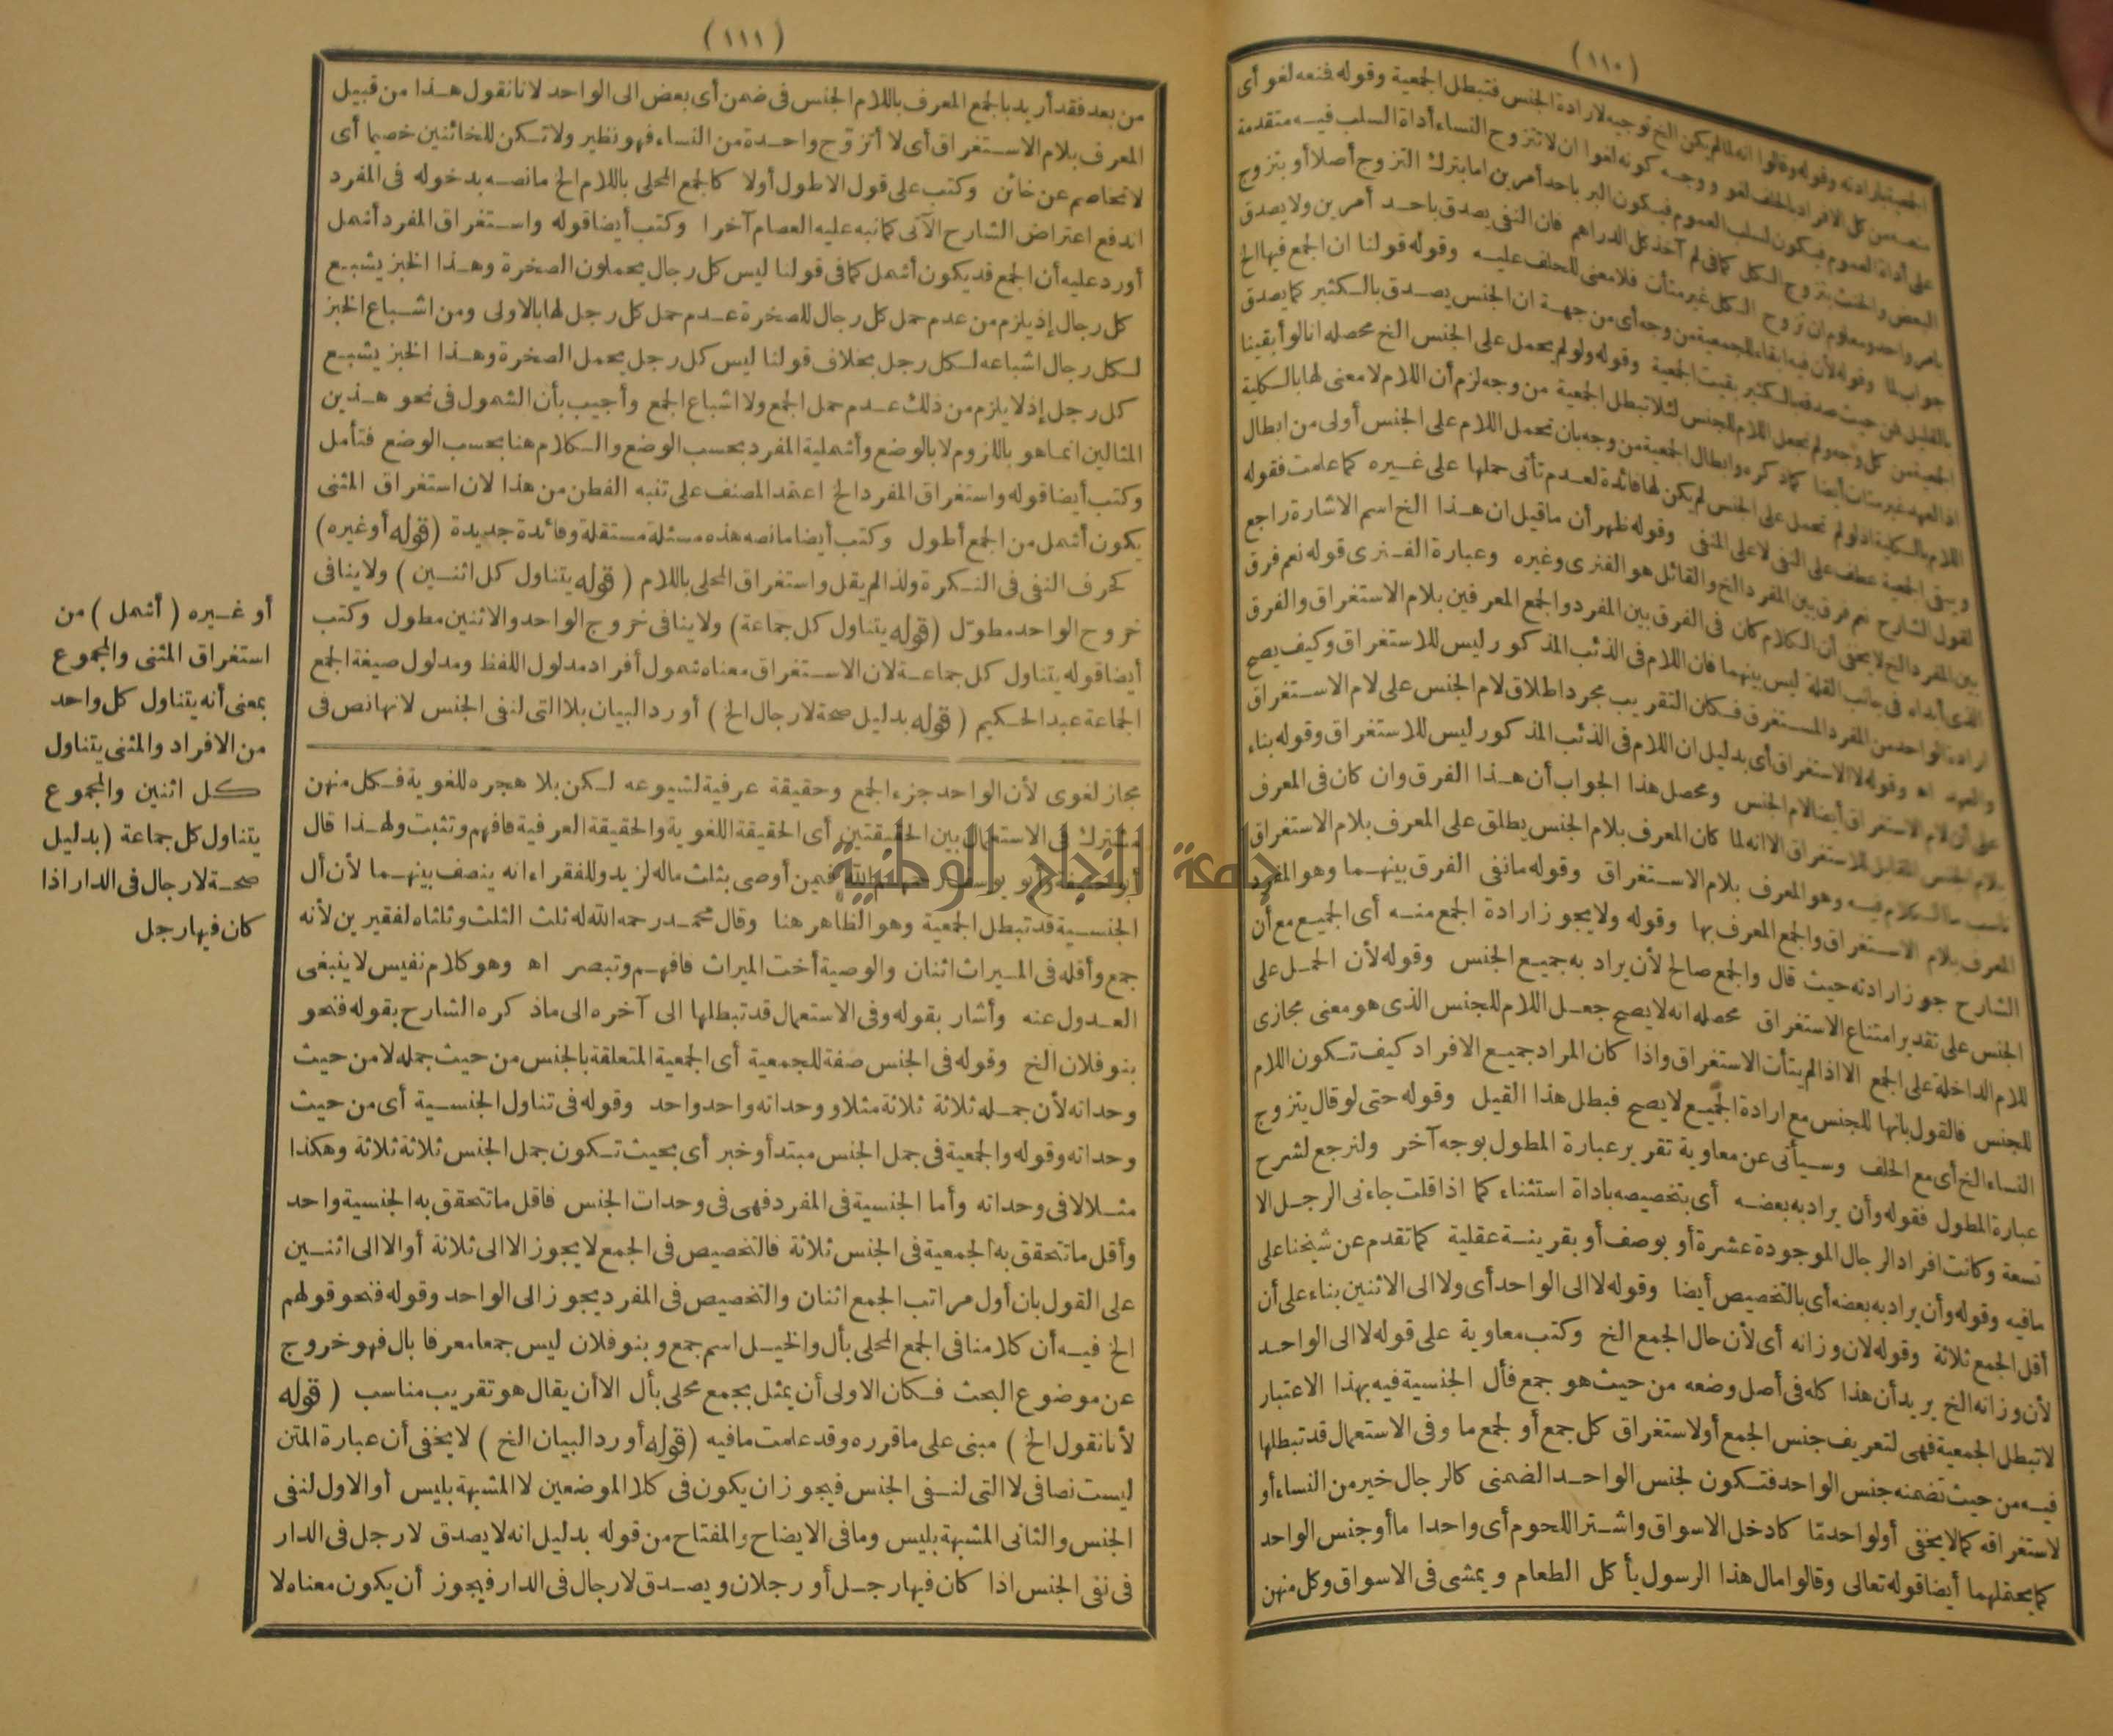 (١١٠)
الجمعية بارادته وقوله وقالوا انه لما لم يكن الخ توجيه لارادة الجنس فتبطل الجمعية وقوله فنعه لغو أى
منعه من كل الافراد بالحلف لغو ووجه كونه لغوا ان لا تتزوج النساء أداة السلب فيه متقدمة
على أداة العموم فيكون لسلب العموم فيكون البر باحد أمرين اما بترك التزوج أصلا أو بتزوج
البعض والحنث بتزوج الكل كما فى لم آخذ كل الدراهم فان النفى يصدق باحد أمرين ولا يصدق
بامر واحد ومعلوم ان تزوج الكل غير متأت فلا معنى للحلف عليه وقوله قولنا ان الجمع فيها الخ
جواب لما وقوله لأن فيه ابقاء للجمعية من وجه أى من جهة ان الجنس يصدق بالكثير كما يصدق
بالقليل فمن حيث صدقه بالكثير بقيت الجمعية وقوله ولو لم يحمل على الجنس الخ محصله انا لو أبقينا
الجمعية من كل وجه ولم نجعل اللام للجنس لئلا تبطل الجمعية من وجه لزم أن اللام لا معنى لها بالكلية
اذ العهد غير متأت أيضا كما ذكره وابطال الجمعية من وجه بان تحمل اللام على الجنس أولى من ابطال
اللام بالكلية اذ لو لم تحمل على الجنس لم يكن لها فائدة لعدم تأتى حملها على غيره كما علمت فقوله
ويبقى الجمعية عطف على النفى لا على المنفى وقوله ظهر أن ما قيل ان هذا الخ اسم الاشارة راجع
لقول الشارح نعم فرق بين المفرد الخ والقائل هو الفنرى وغيره وعبارة الفنرى قوله نعم فرق
بين المفرد الخ لا يخفى أن الكلام كان فى الفرق بين المفرد والجمع المعرفين بلام الاستغراق والفرق
الذى أبداه فى جانب القلة ليس بينهما فان اللام فى الذئب المذكور ليس للاستغراق وكيف يصح
ارادة الواحد من المفرد المستغرق فكان التقريب مجرد اطلاق لام الجنس على لام الاستغراق
والعهد اه وقوله لا الاستغراق أى بدليل ان اللام فى الذئب المذكور ليس للاستغراق وقوله بناء
على أن لام الاستغراق أيضا لام الجنس ومحصل هذا الجواب أن هذا الفرق وان كان فى المعرف
بلام الجنس المقابل للاستغراق الا انه لما كان المعرف بلام الجنس يطلق على المعرف بلام الاستغراق
ناسب ما الكلام فيه وهو المعرف بلام الاستغراق وقوله ما نفى الفرق بينهما وهو المفرد
المعرف بلام الاستغراق والجمع المعرف بها وقوله ولا يجوز ارادة الجمع منه أى الجميع مع أن
الشارح جوز ارادته حيث قال والجمع صالح لأن يراد به جميع الجنس وقوله لأن الحمل على
الجنس على تقدير امتناع الاستغراق محصله انه لا يصح جعل اللام للجنس الذى هو معنى مجازى
للام الداخلة على الجمع الا اذا لم يتأت الاستغراق واذا كان المراد جميع الافراد كيف تكون اللام
للجنس فالقول بانها للجنس مع ارادة الجميع لا يصح فبطل هذا القيل وقوله حتى لو قال يتزوج
النساء الخ أى مع الحلف وسيأتى عن معاوية تقرير عبارة المطول بوجه آخر ولنرجع لشرح
عبارة المطول فقوله وأن يراد به بعضه أى بتخصيصه باداة استثناء كما اذا قلت جاءنى الرجل الا
تسعة وكانت افراد الرجال الموجودة عشرة أو بوصف أو بقرينة عقلية كما تقدم عن شيخنا على
مافيه وقوله وأن يراد به بعضه أى بالتخصيص أيضا وقوله لا الى الواحد أى ولا الى الاثنين بناء على أن
أقل الجمع ثلاثة وقوله لان وزانه أى لأن حال الجمع الخ وكتب معاوية على قوله لا الى الواحد
لأن وزانه الخ يريد أن هذا كله فى أصل وضعه من حيث هو جمع فأل الجنسية فيه بهذا الاعتبار
لا تبطل الجمعية فهى لتعريف جنس الجمع أو لاستغراق كل جمع أو لجمع ما وفى الاستعمال قد تبطلها
فيه من حيث تضمنه جنس الواحد فتكون لجنس الواحد الضمنى كالرجال خير من النساء أو
لاستغراقه كما لا يخفى أو لواحد مّا كادخل الاسواق واشتر اللحوم أى واحدا ما أو جنس الواحد
كما يحتملهما أيضا قوله تعالى وقالوا مال هذا الرسول يأكل الطعام ويمشى فى الاسواق وكل منهن
(١١١)
من بعد فقد أريد بالجمع المعرف باللام الجنس فى ضمن أى بعض الى الواحد لانا نقول هذا من قبيل
المعرف بلام الاستغراق أى لا أتزوّج واحدة من النساء فهو نظير ولا تكن للخائنين خصيما أى
لا تخاصم عن خائن وكتب على قول الاطول أولا كالجمع المحلى باللام الخ مانصه بدخوله فى المفرد
اندفع اعتراض الشارح الآتى كما نبه عليه العصام آخرا وكتب أيضا قوله واستغراق المفرد أشمل
أورد عليه أن الجمع قد يكون أشمل كما فى قولنا ليس كل رجال يحملون الصخرة وهذا الخبز يشبع
كل رجال إذ يلزم من عدم حمل كل رجال للصخرة عدم حمل كل رجل لها بالاولى ومن اشباع الخبز
لكل رجال اشباعه لكل رجل بخلاف قولنا ليس كل رجل يحمل الصخرة وهذا الخبز يشبع
كل رجل إذ لا يلزم من ذلك عدم حمل الجمع ولا اشباع الجمع وأجيب بأن الشمول فى نحو هذين
المثالين انما هو باللزوم لا بالوضع وأشملية المفرد بحسب الوضع والكلام هنا بحسب الوضع فتأمل
وكتب أيضا قوله واستغراق المفرد الخ اعتمد المصنف على تنبه الفطن من هذا لان استغراق المثنى
يكون أشمل من الجمع أطول وكتب أيضا مانصه هذه مسئلة مستقلة وفائدة جديدة (قوله أو غيره)
كحرف النفى فى النكرة ولذا لم يقل واستغراق المحلى باللام (قوله يتناول كل اثنين) ولا ينافى
خروح الواحد مطوّل (قوله يتناول كل جماعة) ولا ينافى خروج الواحد والاثنين مطول وكتب
أيضا قوله يتناول كل جماعة لان الاستغراق معناه شمول أفراد مدلول اللفظ ومدلول صيغة الجمع
الجماعة عبد الحكيم (قوله بدليل صحة لا رجال الخ) أورد البيان بلا التى لنفى الجنس لانها نص فى
أو غيره (أشمل) من
استغراق المثنى والمجموع
بمعنى أنه يتناول كل واحد
من الافراد والمثنى يتناول
كل اثنين والمجموع
يتناول كل جماعة (بدليل
صحة لا رجال فى الدار اذا
كان فيها رجل
مجاز لغوى لأن الواحد جزء الجمع وحقيقة عرفية لشيوعه لكن بلا هجره للغوية فكل منهن
مشترك فى الاستعمال بين الحقيقتين أى الحقيقة اللغوية والحقيقة العرفية فافهم وتثبت ولهذا قال
أبو حنيفة وأبو يوسف رحمهم الله فيمن أوصى بثلث ماله لزيد وللفقراء انه ينصف بينهما لأن أل
الجنسية قد تبطل الجمعية وهو الظاهر هنا وقال محمد رحمه الله له ثلث الثلث وثلثاه لفقيرين لأنه
جمع وأقله فى الميراث اثنان والوصية أخت الميراث فافهم وتبصر اه وهو كلام نفيس لا ينبغى
العدول عنه وأشار بقوله وفى الاستعمال قد تبطلها الى آخره الى ما ذكره الشارح بقوله فنحو
بنو فلان الخ وقوله فى الجنس صفة للجمعية أى الجمعية المتعلقة بالجنس من حيث جمله لا من حيث
وحداته لأن جمله ثلاثة ثلاثة مثلا ووحداته واحد واحد وقوله فى تناول الجنسية أى من حيث
وحداته وقوله والجمعية فى جمل الجنس مبتدأ وخبر أى بحيث تكون جمل الجنس ثلاثة ثلاثة وهكذا
مثلا لا فى وحداته وأما الجنسية فى المفرد فهى فى وحدات الجنس فاقل ما تتحقق به الجنسية واحد
وأقل ما تتحقق به الجمعية فى الجنس ثلاثة فالتخصيص فى الجمع لا يجوز الا الى ثلاثة أو الا الى اثنين
على القول بان أول مراتب الجمع اثنان والتخصيص فى المفرد يجوز الى الواحد وقوله فنحو قولهم
الخ فيه أن كلامنا فى الجمع المحلى بأل والخيل اسم جمع وبنو فلان ليس جمعا معرفا بال فهو خروج
عن موضوع البحث فكان الاولى أن يمثل بجمع محلى بأل الا أن يقال هو تقريب مناسب (قوله
لأنا نقول الخ) مبنى على ما قرره وقد علمت مافيه (قوله أورد البيان الخ) لا يخفى أن عبارة المتن
ليست نصا فى لا التى لنفى الجنس فيجوز ان يكون فى كلا الموضعين لا المشبهة بليس أو الاول لنفى
الجنس والثانى المشبهة بليس وما فى الايضاح والمفتاح من قوله بدليل انه لا يصدق لا رجل فى الدار
فى نفى الجنس اذا كان فيها رجل أو رجلان ويصدق لا رجال فى الدار فيجوز أن يكون معناه لا
جامعة النجاح الوطنية